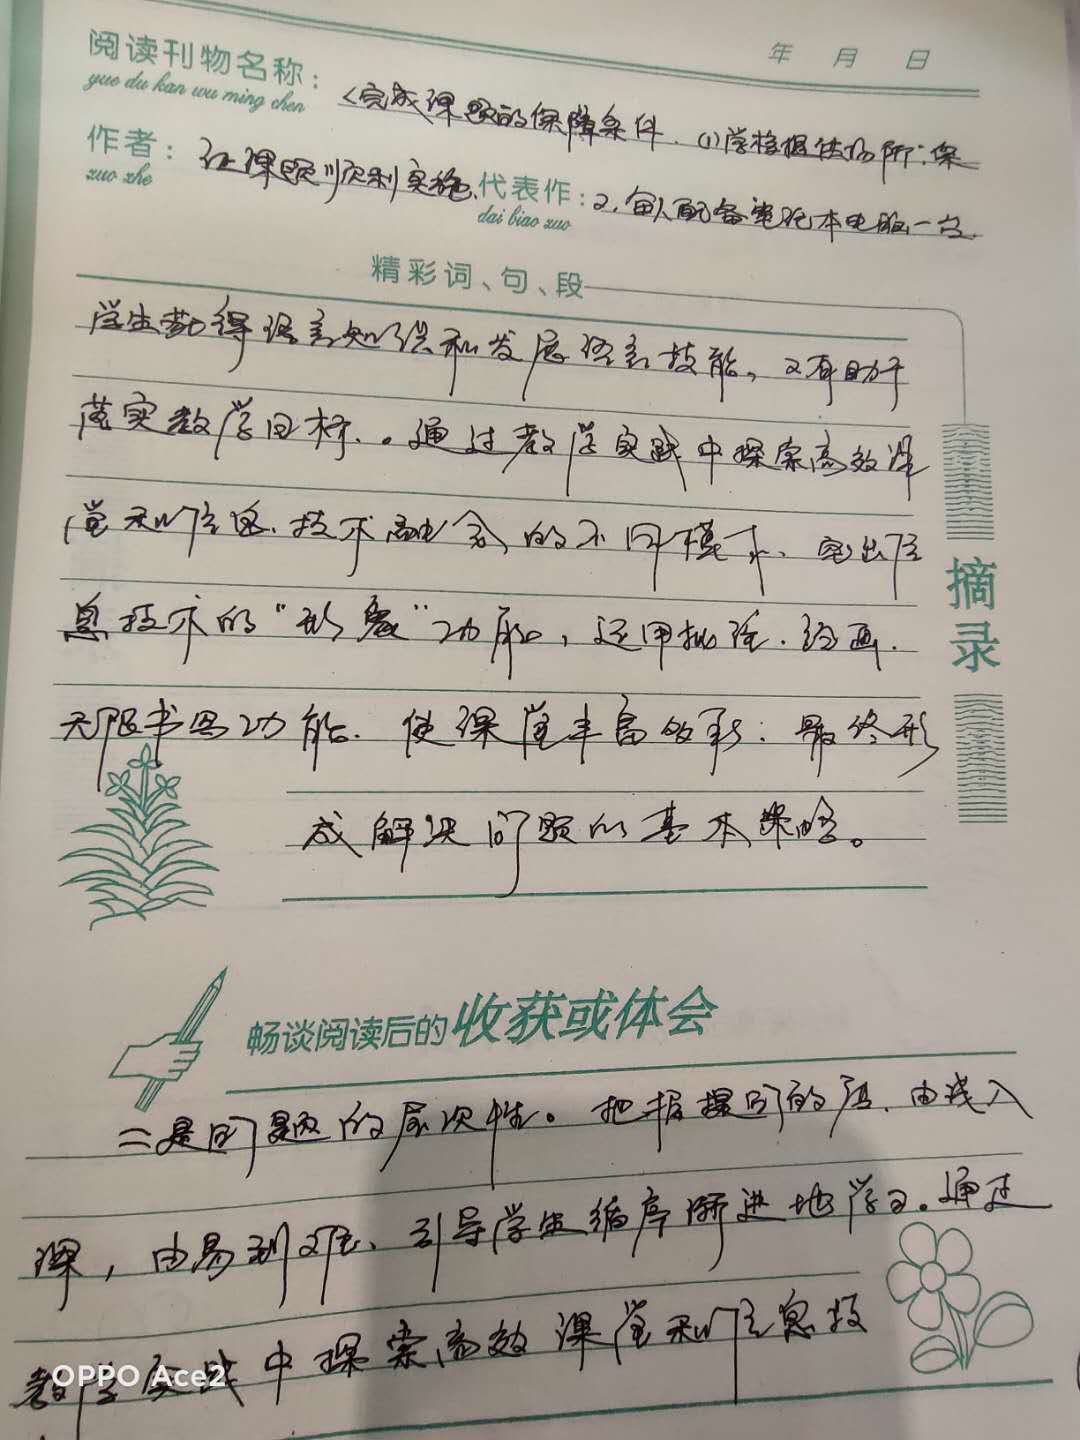 年 月 日
阅读刊物名称：
yue du kan wu ming chen
<完成课题的保障条件.(1)学校提供场所:保
作者：
zuo zhe
证课题顺利实施.
代表作：
dai biao zuo
2.每人配备笔记本电脑一台.
精彩词、句、段
学生获得语言知识和发展语言技能，又有助于
落实教学目标.。通过教学实践中探索高效课
堂和信息.技术融合的不同模式、突出信
息技术的“形象”功能，运用批注.绘画.
无限书写功能.使课堂丰富多彩：最终形
成解决问题的基本策略。
摘录
畅谈阅读后的收获或体会
二是问题的层次性。把握提问的度.由浅入
深，由易到难、引导学生循序渐进地学习。通过
教学实践中探索高效课堂和信息技
OPPO Ace2